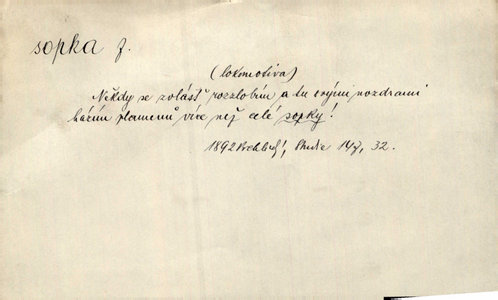 sopka f.
(lokomotiva)
Někdy se zvlášť rozzlobím a tu svými nozdrami
házím plamenů více než celé sopky!
1892 Vrchlický, 147, 32.